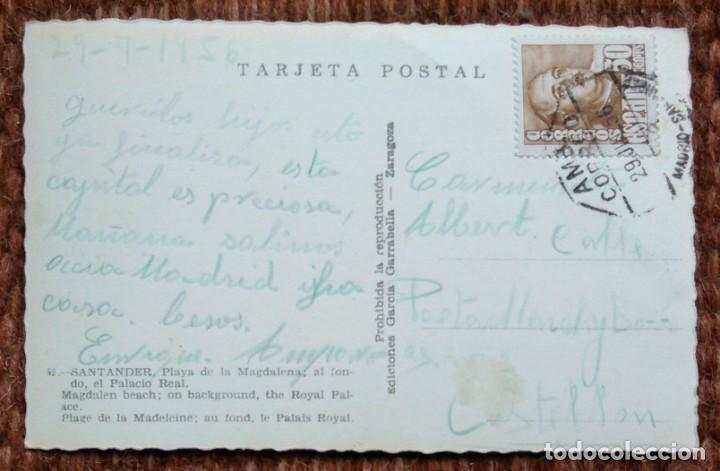 29-7-1956
TARJETA POSTAL
queridos hijos esto
ya finaliza, esta
capital es preciosa,
Mañana salimos
acia Madrid
casa. Besos.
Enrique
51.- SANTANDER, Playa de la Magdalena; al fon-
do, el Palacio Real.
Magdalen beach; on background, the Royal Pal-
ace.
Plage de la Madeleine; au fond, le Palais Royal.
Prohibida la reproducción
Ediciones García Garrabella — Zaragoza
50
CORREOS
ESPAÑA
29 JUL
MADRID-SAN
Carmen
Albert. Calle
Castellon
todocoleccion.net